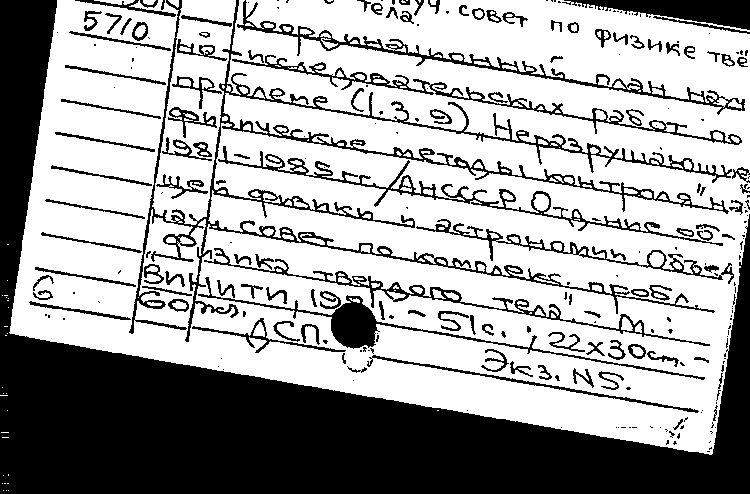 науч. совет по физике твё
тела.
5710
Координационный план науч
но-исследовательских работ по
проблеме (1.3.9) „Неразрушающие
физические методы контроля" на
1981-1985 гг. / АН СССР. Отд-ние об-
щей физики и астрономии. Объед.
науч. совет по комплекс. пробл.
"Физика твердого тела". - М.:
ВИНИТИ, 1981. - 51 с.; 22x30 см. -
6
60 экз.
ДСП.
Экз. N5.